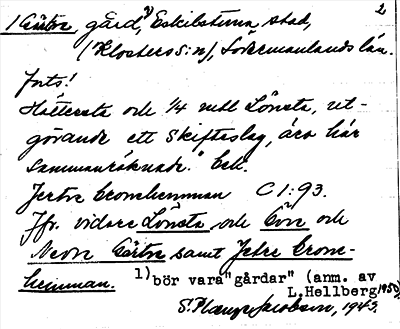 2
1 Gärtre gård,1) Eskilstuna stad,
(Klosters s:n), Södermanlands län.
Forts!
Hättersta och 1/4 mtl Lönsta, ut-
görande ett skifteslag, äro här
sammanräknade." Bek.
Jertre kronohemman C 1:93.
Jfr. vidare Lönsta och och
Nedre Gärtre samt Jetre krono-
hemman.
1) bör vara "gårdar" (anm. av
L.Hellberg 1950)
Jacobson, 1943.